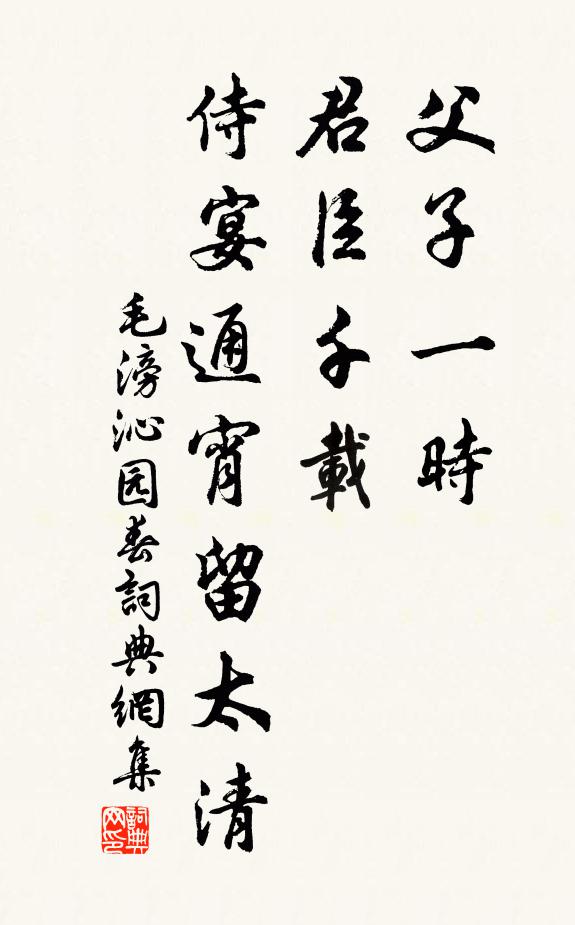 父子一時
君臣千載
侍宴通宵留太清
毛滂沁园春詞典網集
詞典网印